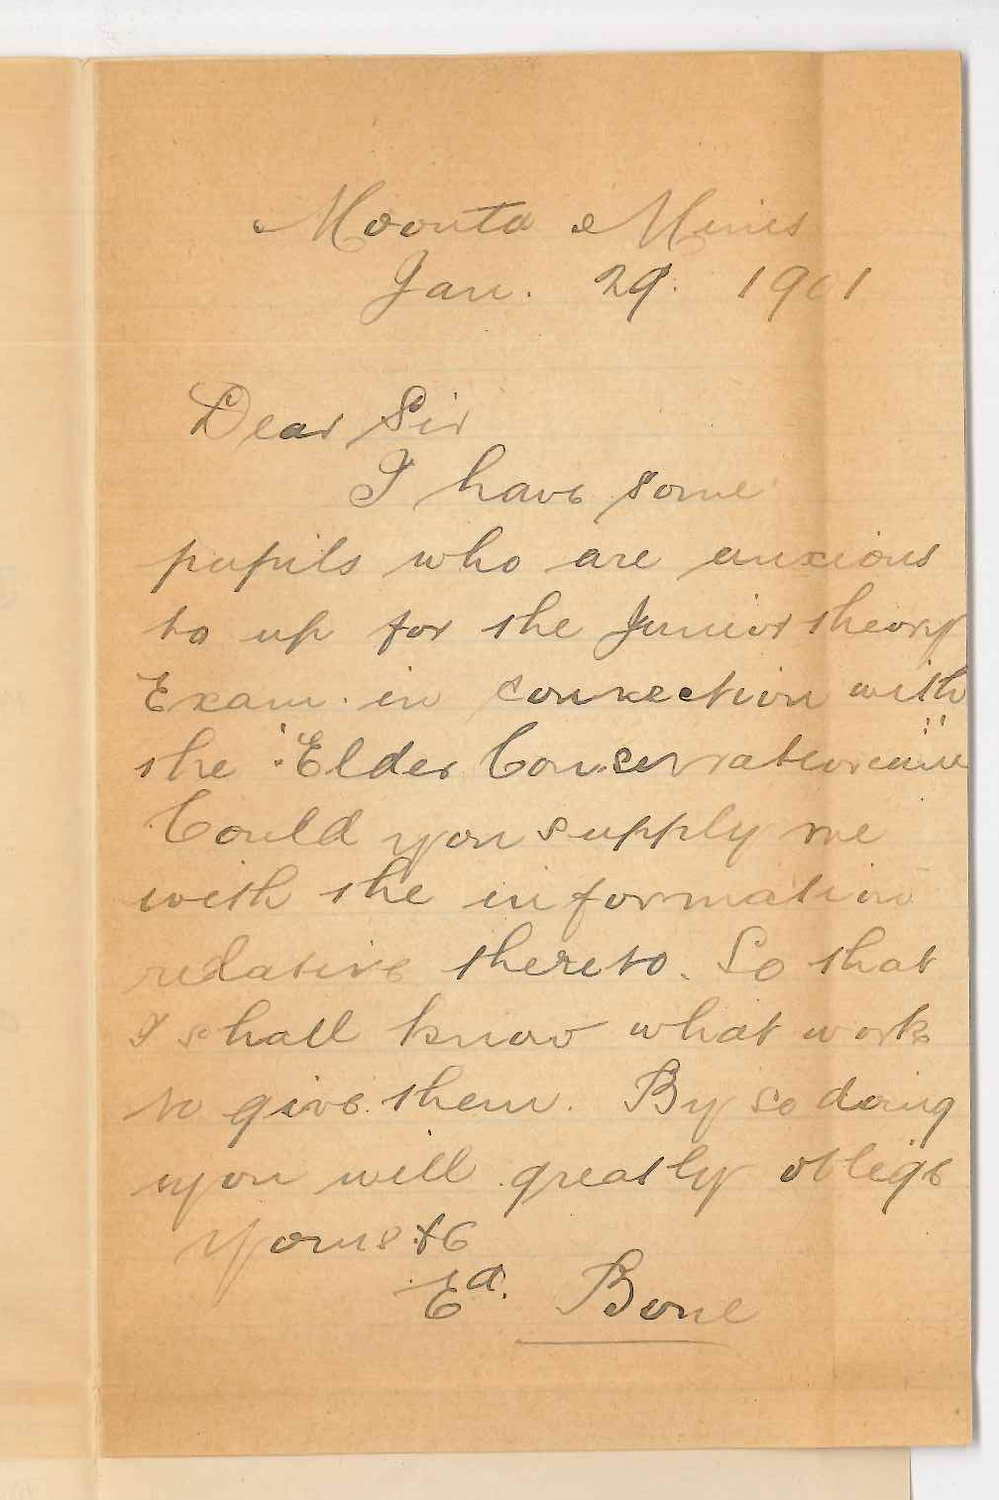 Moonta Mines
Jan. 29. 1901
Dear Sir
I have some
pupils who are anxious
to up for the Junior theory
Exam. in connection with
the "Elder Conservatorium"
Could you supply me
with the information
relative thereto. So that
I shall know what work
to give them. By so doing
you will greatly oblige
Yours &c
Ed. Bone